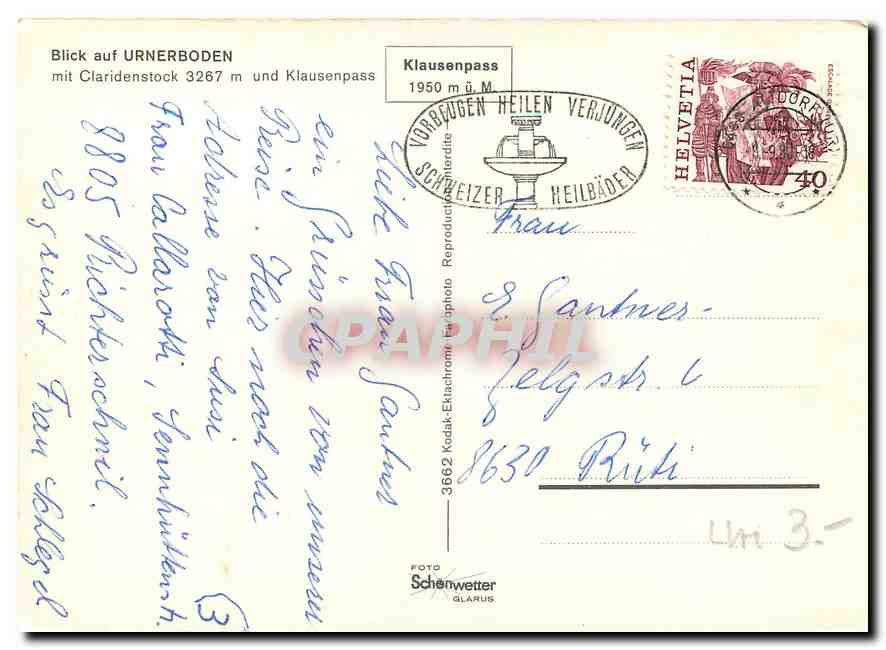 Blick auf URNERBODEN
mit Claridenstock 3267 m und Klausenpass
Klausenpass
1950 m ü. M.
VORBEUGEN HEILEN VERJÜNGEN
SCHWEIZER HEILBÄDER
HELVETIA
40
ALTDORF URI
Liebe Frau Gantner
ein Grüsschen von unserer
Reise. Hier noch die
Adresse von Susi
Frau Callarotti, Sennhüttenstr.
8805 Richterschwil.
Es grüsst Frau Schlegel
Frau
E. Gantner-
Zelgstr. 6
8630 Rüti
3662 Kodak-Ektachrome Farbphoto Reproduction interdite
FOTO
Schönwetter
GLARUS
Uri 3.-
CPAPHIL